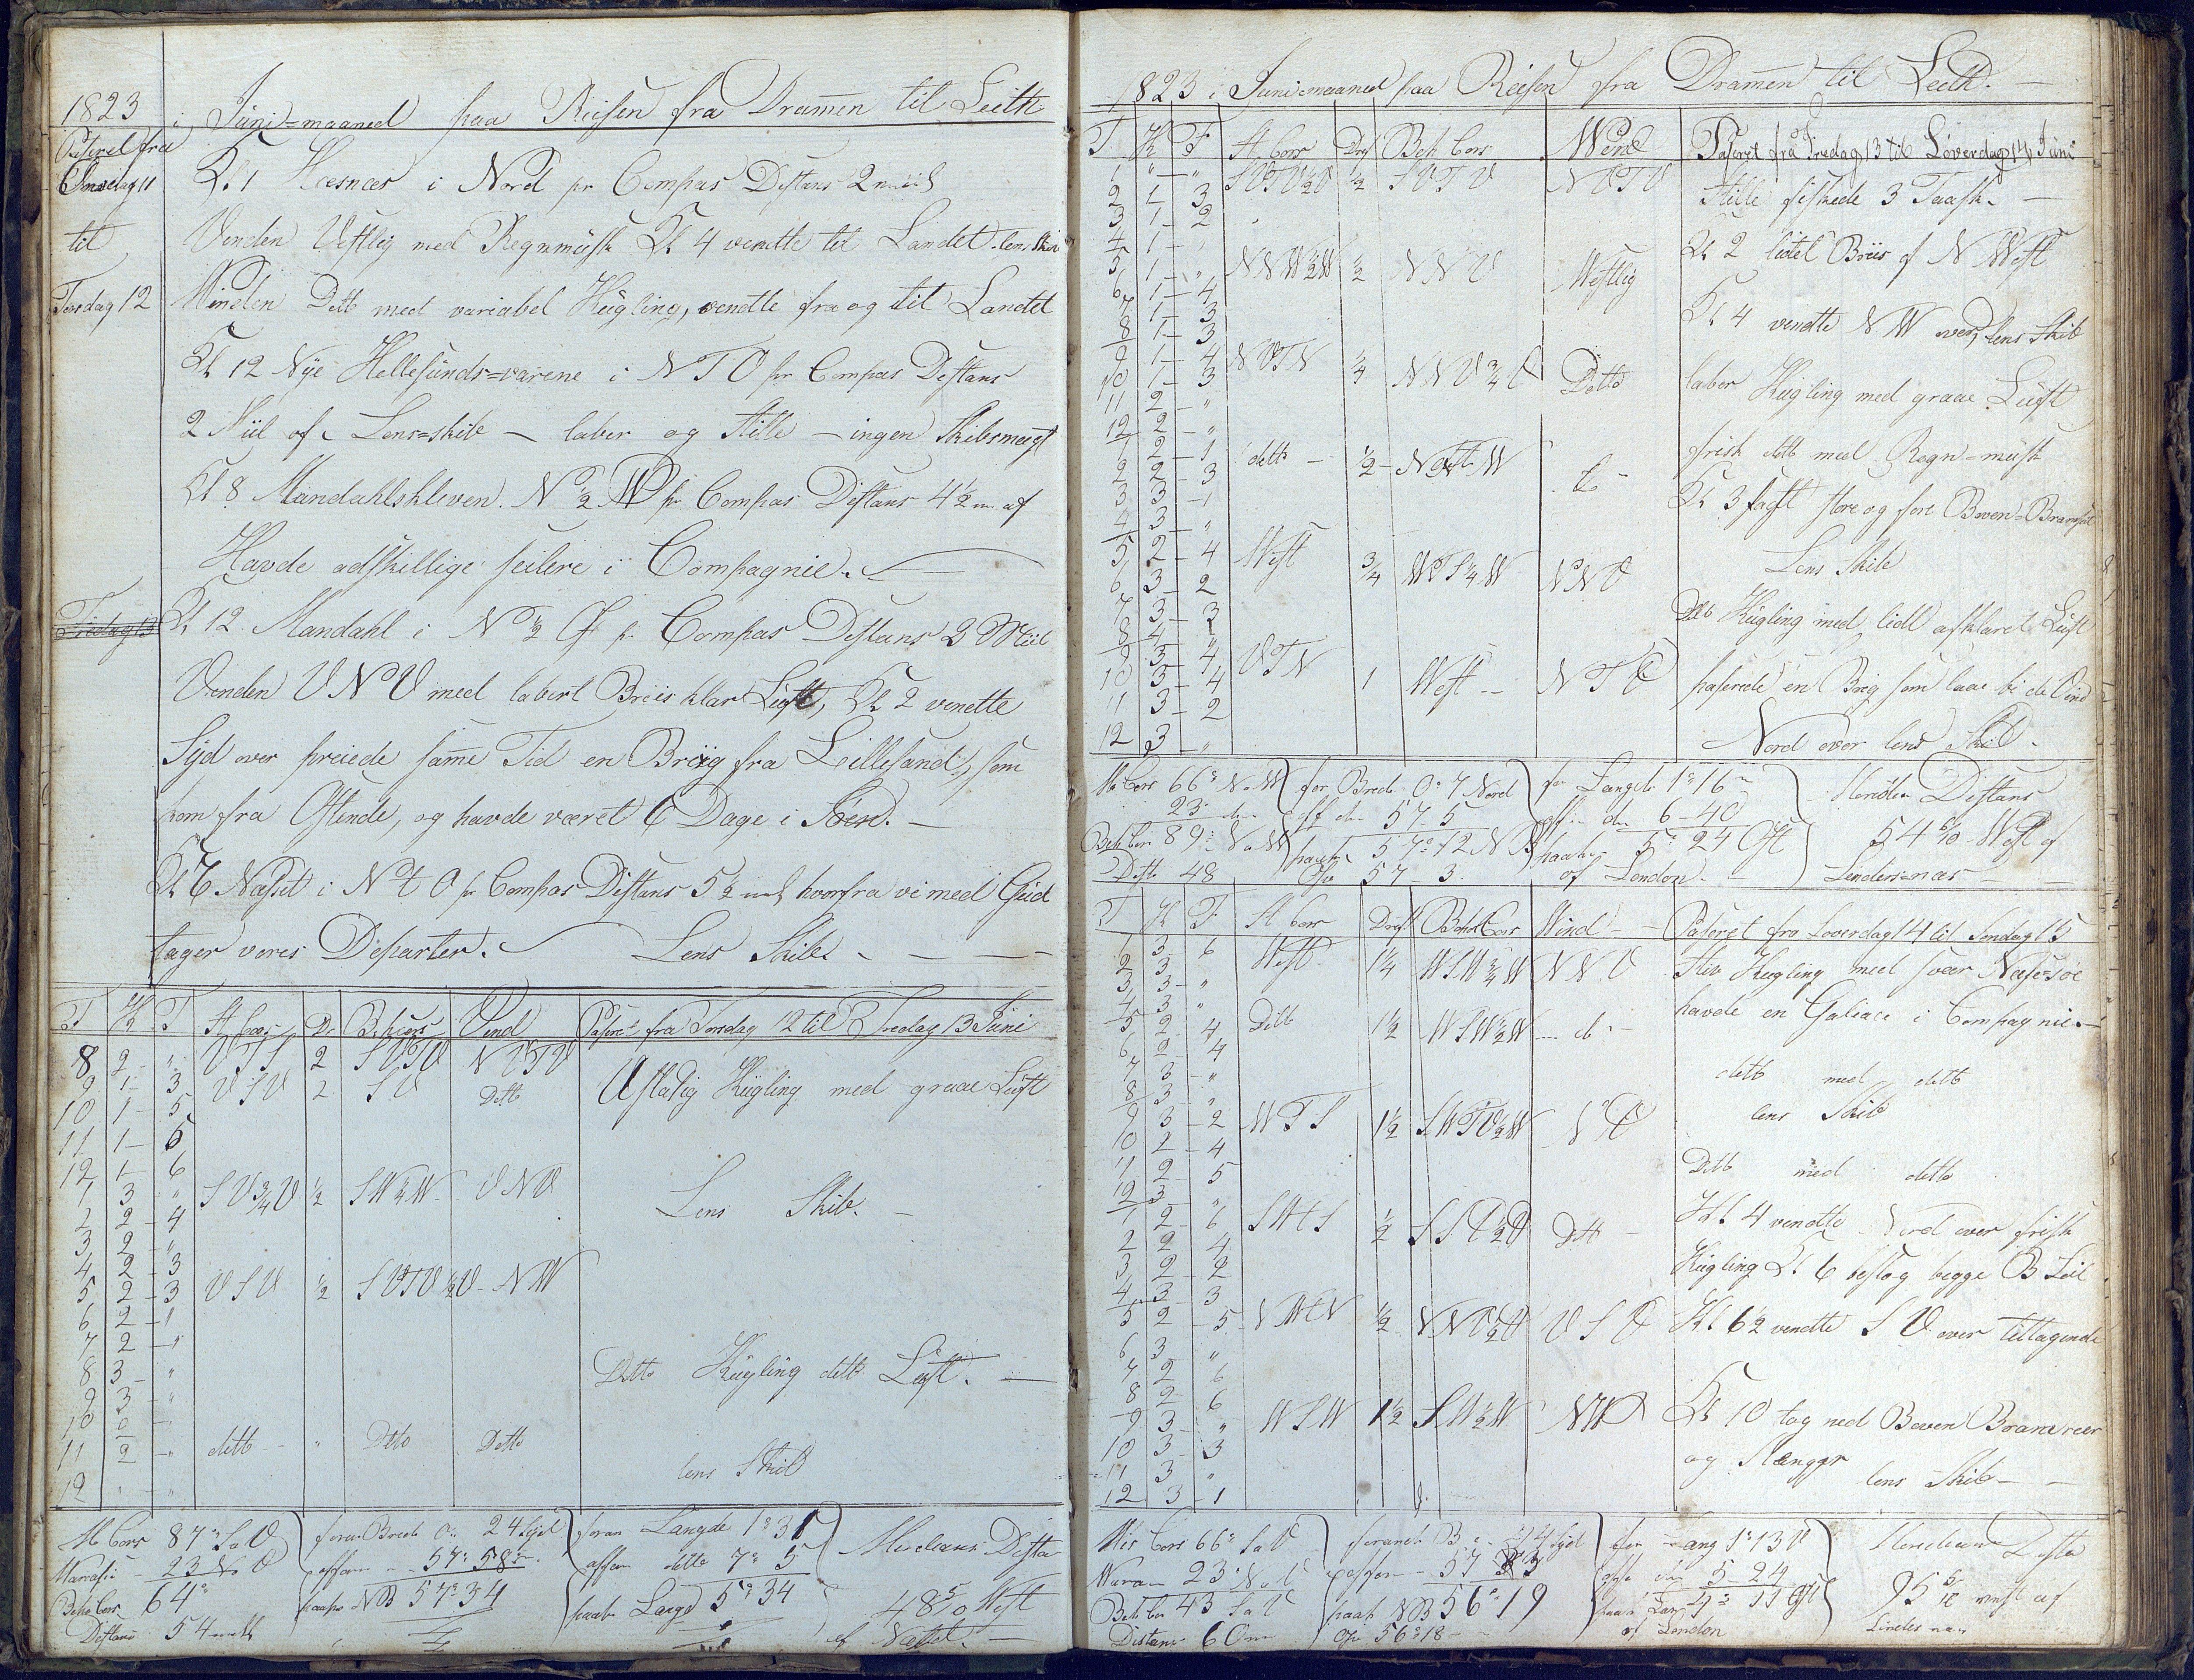 1823 i Juni=maaned paa Reisen fra Dramen til Leith
Paseret fra
Onsdag 11
til
Torsdag 12
Kl 1 Hæsnæs i Nord pr Compas Distans 2 miil
Vinden Vestlig med Regnmusk Kl 4 vendte til Landet lens Skib
Winden Ditto med variabel Kügling, vendte fra og til Landet
Kl 12 Nye Hellesunds=varene i N T O pr Compas Distans
2 Miil af - Lens=skib - laber og Stille - ingen Skibsmagt
Kl 8 Mandahlskleven N ½ W pr Compas Distans 4½ m af
Havde adskillige seilere i Compagnie.
Fredag 13
Kl 12 Mandahl i N ½ Ost pr Compas Distans 3 Miil
Vinden V N V med labert Briis klar Luft, Kl 2 vendte
Syd over preiede same Tid en Brig fra Lillesand, som
kom fra Ostende, og havde været 6 Dage i Søen.
Kl 6 Næsset i N t O pr Compas Distans 5½ m hvorfra vi med Gud
tager vores Departer. Lens Skib
T K F St Cors Dr B. Kurs Vind Paseret fra Torsdag 12 til Fredag 13 Juni
8 2 " V T S 2 S V T V N V T V
9 1 3 V S V 2 S V Ditto Ustadig Kügling med graae Luft
10 1 5
11 1 5
12 1 6
1 3 " S V ¾ V ½ S W ¼ W V N V Lens Skib.
2 2 4
3 2 "
4 2 3
5 2 3 V S V ½ S V T V ½ V N W
6 2 1
7 2 "
8 3 " Ditto Kügling ditto Luft.
9 3 "
10 2
11 2 " ditto " Ditto Ditto
12 " " lens Skib
M Cors 87° S o V
23 N o V
Beh Cors 64°
Distans 54
foran Brede 0° 24 Syd
affaren 57° 58
paak NB 57° 34
foran Længde 1° 31
affaren ditto 7° 5
paak Længd 5° 34
Meridians Distans
48 5/10 West
af Næsset.
1823 i Juni=maaned paa Reisen fra Dramen til Leith.
T K F St Cors Drif Beh Cors Wind Paseret fra Fredag 13 til Løverdag 14 Juni
1 " " S V T V ½ V ½ S V T V N V T V Stille fiskede 3 Taask.
2 1 3
3 1 2
4 1 Kl 2 lidet Briis af N West
5 1 " N N W ½ W ½ N N V Westlig
6 1 4
7 1 3 Kl 4 vendte N W over, lens Skib
8 1 3
9 1 4 N V T N ¼ N N V ¾ V Ditto laber Kugling med graae Luft
10 1 3
11 2 "
12 2 "
1 2 1 ditto ½ W frisk ditto med Regn=musk
2 2 3
3 3 1 Kl 3 fast store og fore Boven=Bramseil
4 3 "
5 2 4 West ¾ W T S ¼ W N N V Lens Skib
6 3 2
7 3 3 Ditto Kügling med lidt afklaret Luft
8 4 "
9 3 4 V T N 1 West N T V paserede en Brig som laae bi de Vind
10 3 4
11 3 2
12 3 " Nord over lens Skib.
M Cors 66° N o W
23
Beh Cors 89° N o W
Dist 48
for Brede 0° 7 Nord
aff 57 5
paak 57° 12 NB
Obs 57 3
for Længde 1° 16
aff 6 - 40
paak 5° 24 Ost
af London
Meridian Distans
54 6/10 West af
Lindesnæs
T K F St Cors Drift Beh Cors Wind Paseret fra Loverdag 14 til Søndag 15
1 3 6 West 1¼ W S W ¾ W N N V Stiv Kugling med svær Næsesøe
2 3
3 3 " havde en Galiace i Compagnie.
4 3 "
5 2 4 Ditto 1½ W S W ½ W do
6 2 4
7 3 " ditto med ditto
8 3 " lens Skib
9 3 2 W T S 1½ S W T V ½ W N V
10 2 4
11 2 5 Ditto med ditto
12 3 "
1 2 6 S W t S ½ S S V ½ V Ditto Kl 4 vendte Nord over frisk
2 2 4
3 2 2 Kugling Kl 6 beslog begge B Seil
4 3 3
5 2 5 N W t N ½ N N V ½ V V S V Kl 6½ vendte S V over tiltagende
6 3 "
7 2 6
8 2 6
9 3 " W S W 1½ S W ½ W N W Kl 10 tog ned Boven Bramreer
10 3 3
11 3 " og Stænger lens Skib
12 3 1
Mis Cors 66° S o V
23 N o V
Beh Cor 43 S o V
Distans 60 m
forand B 14 Syd
affaren 57 33
paak NB 56° 19
Obs 56° 18
for Læng 1° 13 V
5 - 24
Ost
af London
Meridian Dista
95 5/10 west af
Lindesnæs